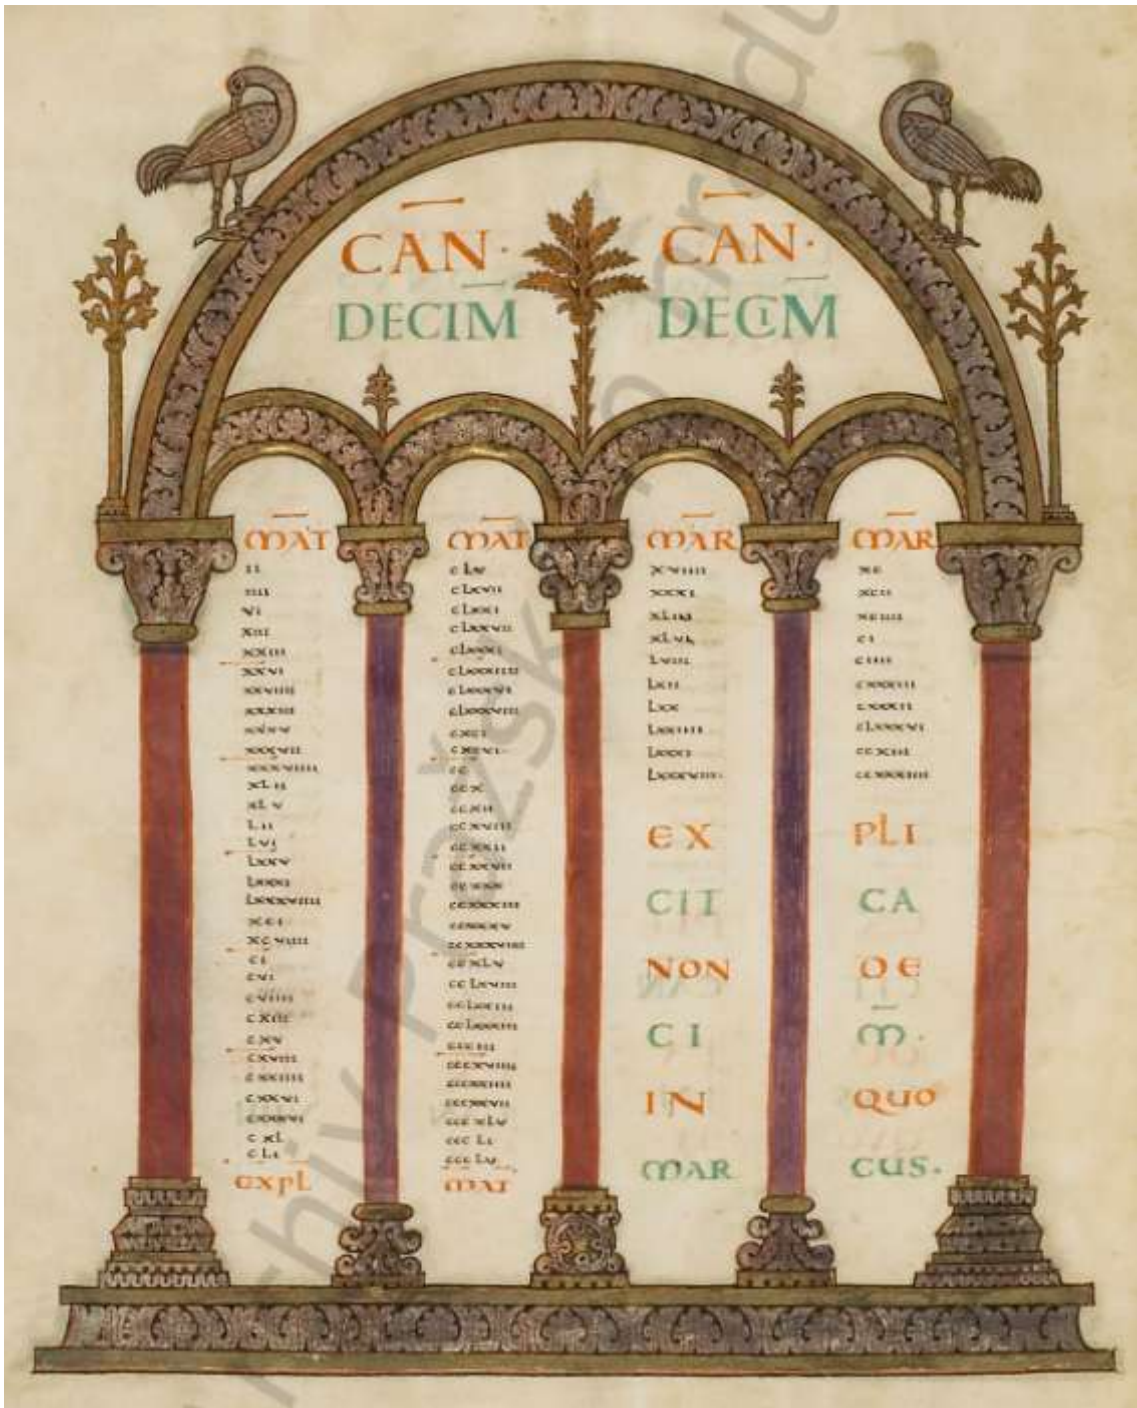 CAN· CAN·
DECIM DECIM
MAT
ii
iiii
vi
xiii
xxiiii
xxvi
xxviiii
xxxiii
xxxv
xxxvii
xxxviiii
xLii
xLv
Lii
Lvi
Lxxv
Lxxxi
Lxxxviiii
xci
xcviiii
ci
cvi
cviiii
cxiii
cxv
cxviii
cxxiiii
cxxvi
cxxxvi
cxL
cLi
EXPL
MAT
cLv
cLxvii
cLxxi
cLxxvii
cLxxxi
cLxxxiiii
cLxxxvi
cLxxxviii
cxci
cxcvi
cc
ccx
ccxii
ccxviii
ccxxii
ccxxvii
ccxxx
ccxxxiii
ccxxxv
ccxxxviii
ccxLv
ccLxviii
ccLxxiii
ccLxxxiii
ccciii
cccxviiii
cccxxiiii
cccxxvii
cccxLv
cccLi
cccLv
MAT
MAR
xviiii
xxxi
xLiii
xLvi
Lviii
Lxii
Lxx
Lxxiiii
Lxxxi
Lxxxviii
MAR
xc
xcii
xciiii
ci
ciiii
cxxxii
cLxxxvi
ccxiii
EX PLI
CIT CA
NON DE
CI M·
IN QUO
MAR CUS·